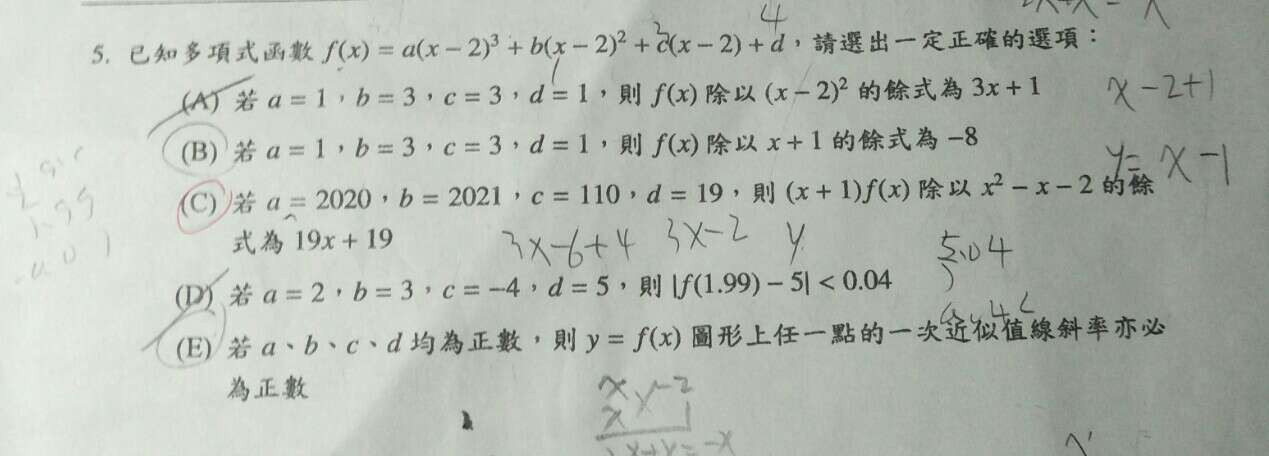 4
5. 已知多項式函數 f(x) = a(x − 2)³ + b(x − 2)² + c(x − 2) + d，請選出一定正確的選項：
(A) 若 a = 1，b = 3，c = 3，d = 1，則 f(x) 除以 (x − 2)² 的餘式為 3x + 1
x − 2 + 1
(B) 若 a = 1，b = 3，c = 3，d = 1，則 f(x) 除以 x + 1 的餘式為 −8
y = x − 1
(C) 若 a = 2020，b = 2021，c = 110，d = 19，則 (x + 1)f(x) 除以 x² − x − 2 的餘
式為 19x + 19
3x−6+4 3x−2 y
5.04
(D) 若 a = 2，b = 3，c = −4，d = 5，則 |f(1.99) − 5| < 0.04
(E) 若 a、b、c、d 均為正數，則 y = f(x) 圖形上任一點的一次近似值線斜率亦必
為正數